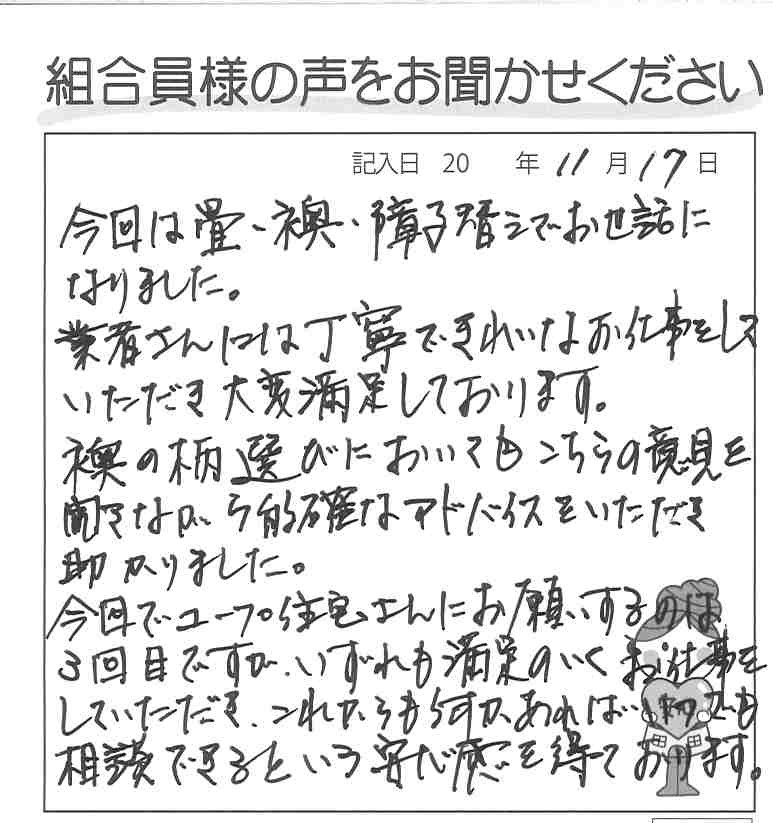 組合員様の声をお聞かせください
記入日 20 年 11 月 17 日
今回は畳、襖、障子替えでお世話に
なりました。
業者さんには丁寧できれいなお仕事をして
いただき大変満足しております。
襖の柄選びにおいてもこちらの意見を
聞きながら的確なアドバイスをいただき
助かりました。
今回でコープ住宅さんにお願いするのは
3回目ですが、いずれも満足のいくお仕事を
していただき、これからも何かあればいつでも
相談できるという安心感を得ております。